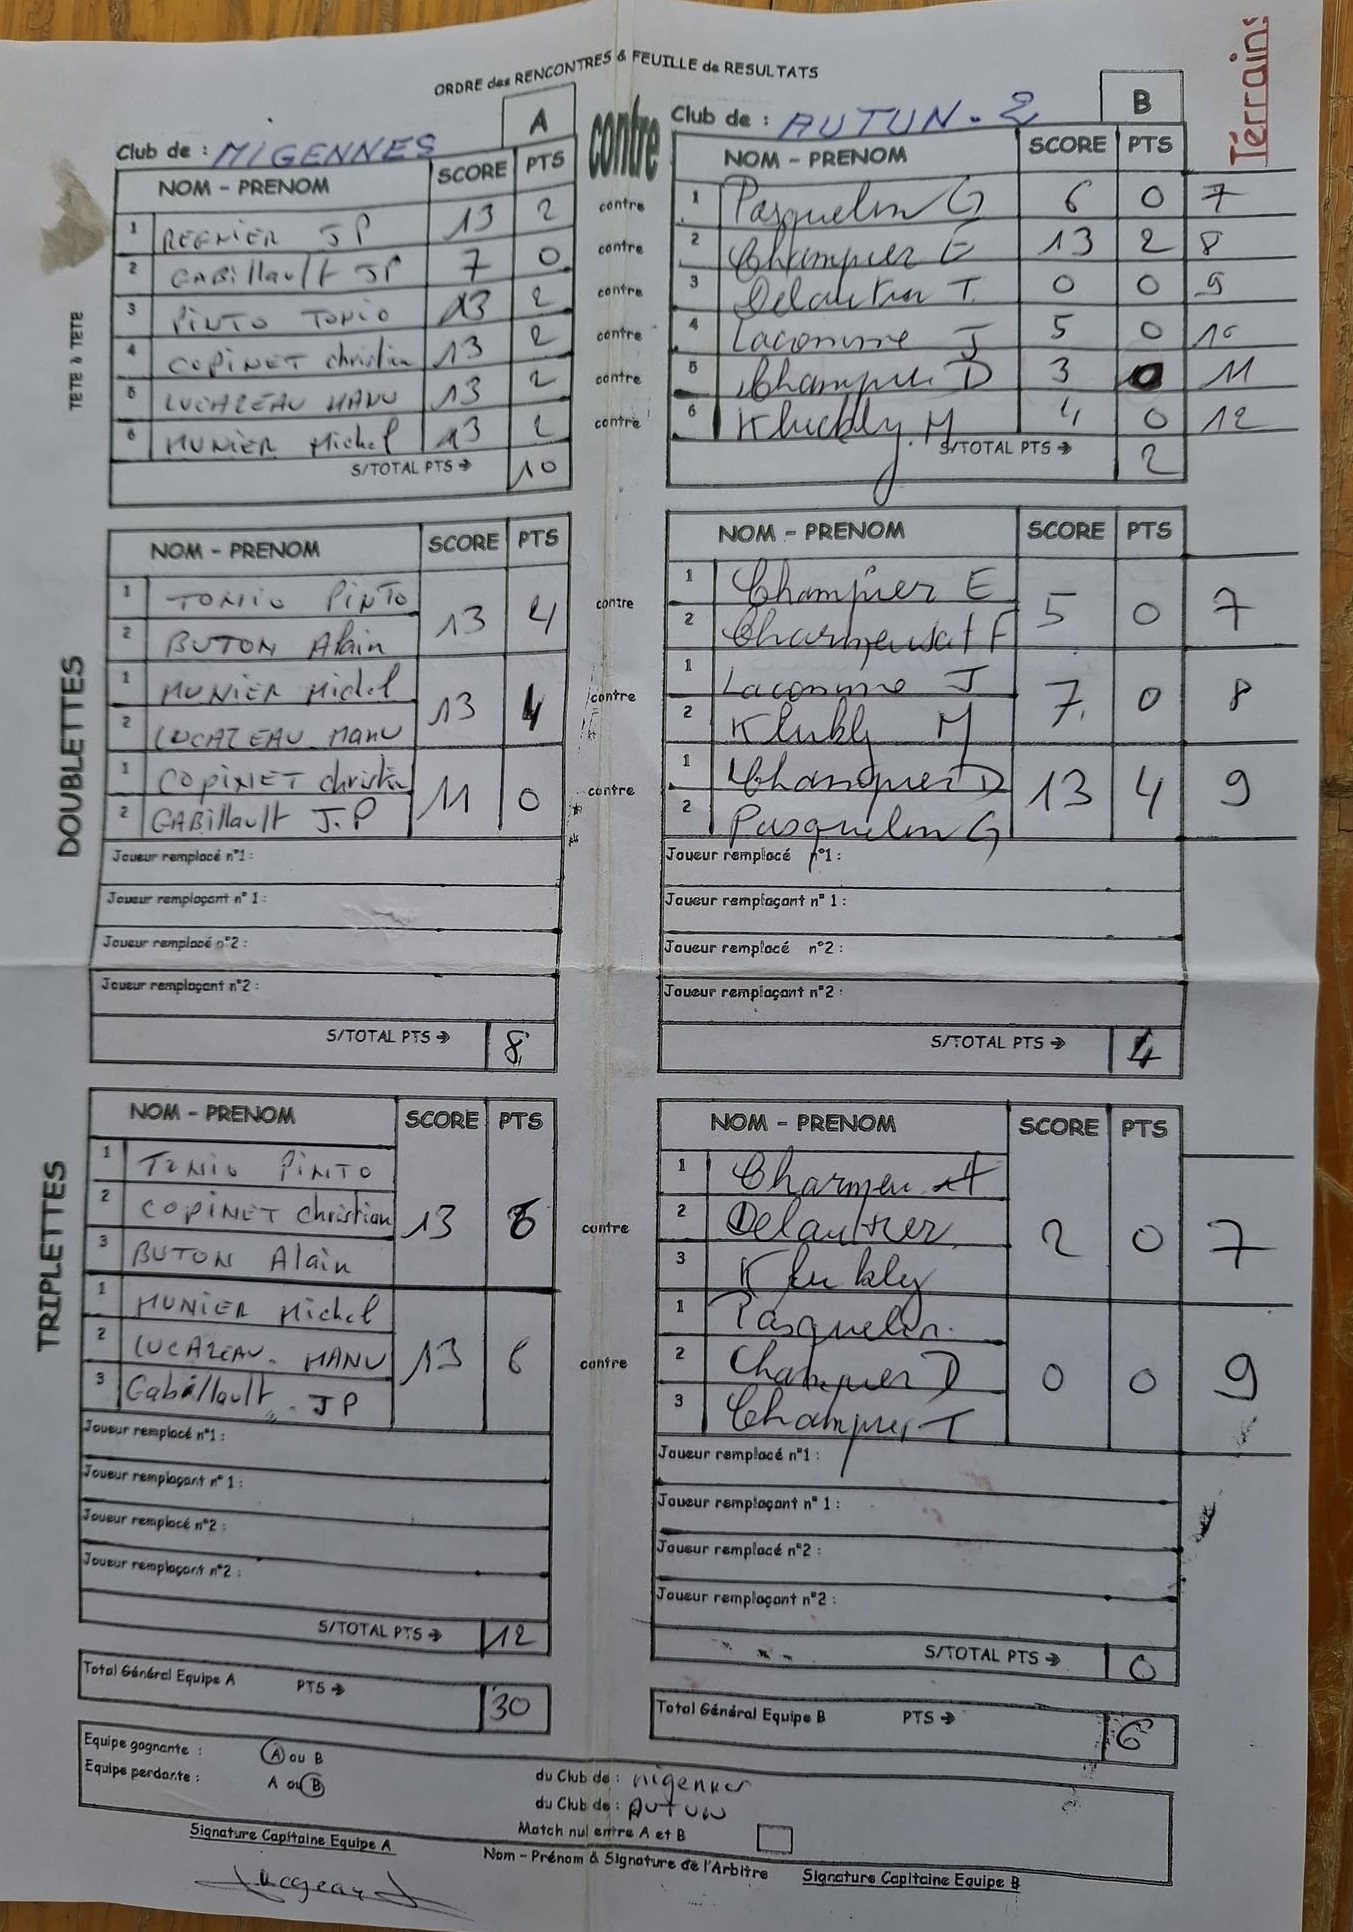 Térrains
ORDRE des RENCONTRES & FEUILLE de RESULTATS
Club de : MIGENNES A contre Club de : AUTUN. 2 B
NOM - PRENOM SCORE PTS NOM - PRENOM SCORE PTS
TETE à TETE
1 REGNIER JP 13 2 contre 1 Pasquelin G 6 0 7
2 GABillault JP 7 0 contre 2 Champier E 13 2 8
3 PiNTO TONiO 13 2 contre 3 T. 0 0 9
4 COPiNET christian 13 2 contre 4 Lacomme J 5 0 10
5 LUCAZEAU MANU 13 2 contre 5 Champier D 3 0 11
6 MUNiER Michel 13 2 contre 6 M 4 0 12
S/TOTAL PTS → 10 S/TOTAL PTS → 2
DOUBLETTES
NOM - PRENOM SCORE PTS NOM - PRENOM SCORE PTS
1 TONiO PiNTO 13 4 contre 1 Champier E 5 0 7
2 BUTON Alain 2 F
1 MUNiER Michel 13 4 contre 1 Lacomme J 7. 0 8
2 LUCAZEAU Manu 2 M
1 COPiNET christian 11 0 contre 1 Champier D 13 4 9
2 GABillault J.P 2 Pasquelin G
Joueur remplacé n°1 : Joueur remplacé n°1 :
Joueur remplaçant n° 1 : Joueur remplaçant n° 1 :
Joueur remplacé n°2 : Joueur remplacé n°2 :
Joueur remplaçant n°2 : Joueur remplaçant n°2 :
S/TOTAL PTS → 8 S/TOTAL PTS → 4
TRIPLETTES
NOM - PRENOM SCORE PTS NOM - PRENOM SCORE PTS
1 TONiO PiNTO 1
2 COPiNET christian 13 6 contre 2 2 0 7
3 BUTON Alain 3
1 MUNiER Michel 1 Pasquelin.
2 LUCAZEAU. MANU 13 6 contre 2 Champier D 0 0 9
3 Gabillault. JP 3 Champier
Joueur remplacé n°1 : Joueur remplacé n°1 :
Joueur remplaçant n° 1 : Joueur remplaçant n° 1 :
Joueur remplacé n°2 : Joueur remplacé n°2 :
Joueur remplaçant n°2 : Joueur remplaçant n°2 :
S/TOTAL PTS → 12 S/TOTAL PTS → 0
Total Général Equipe A PTS → 30 Total Général Equipe B PTS → 6
Equipe gagnante : A ou B du Club de : Migennes
Equipe perdante : A ou B du Club de : AUTUN
Match nul entre A et B
Signature Capitaine Equipe A Nom - Prénom & Signature de l'Arbitre Signature Capitaine Equipe B